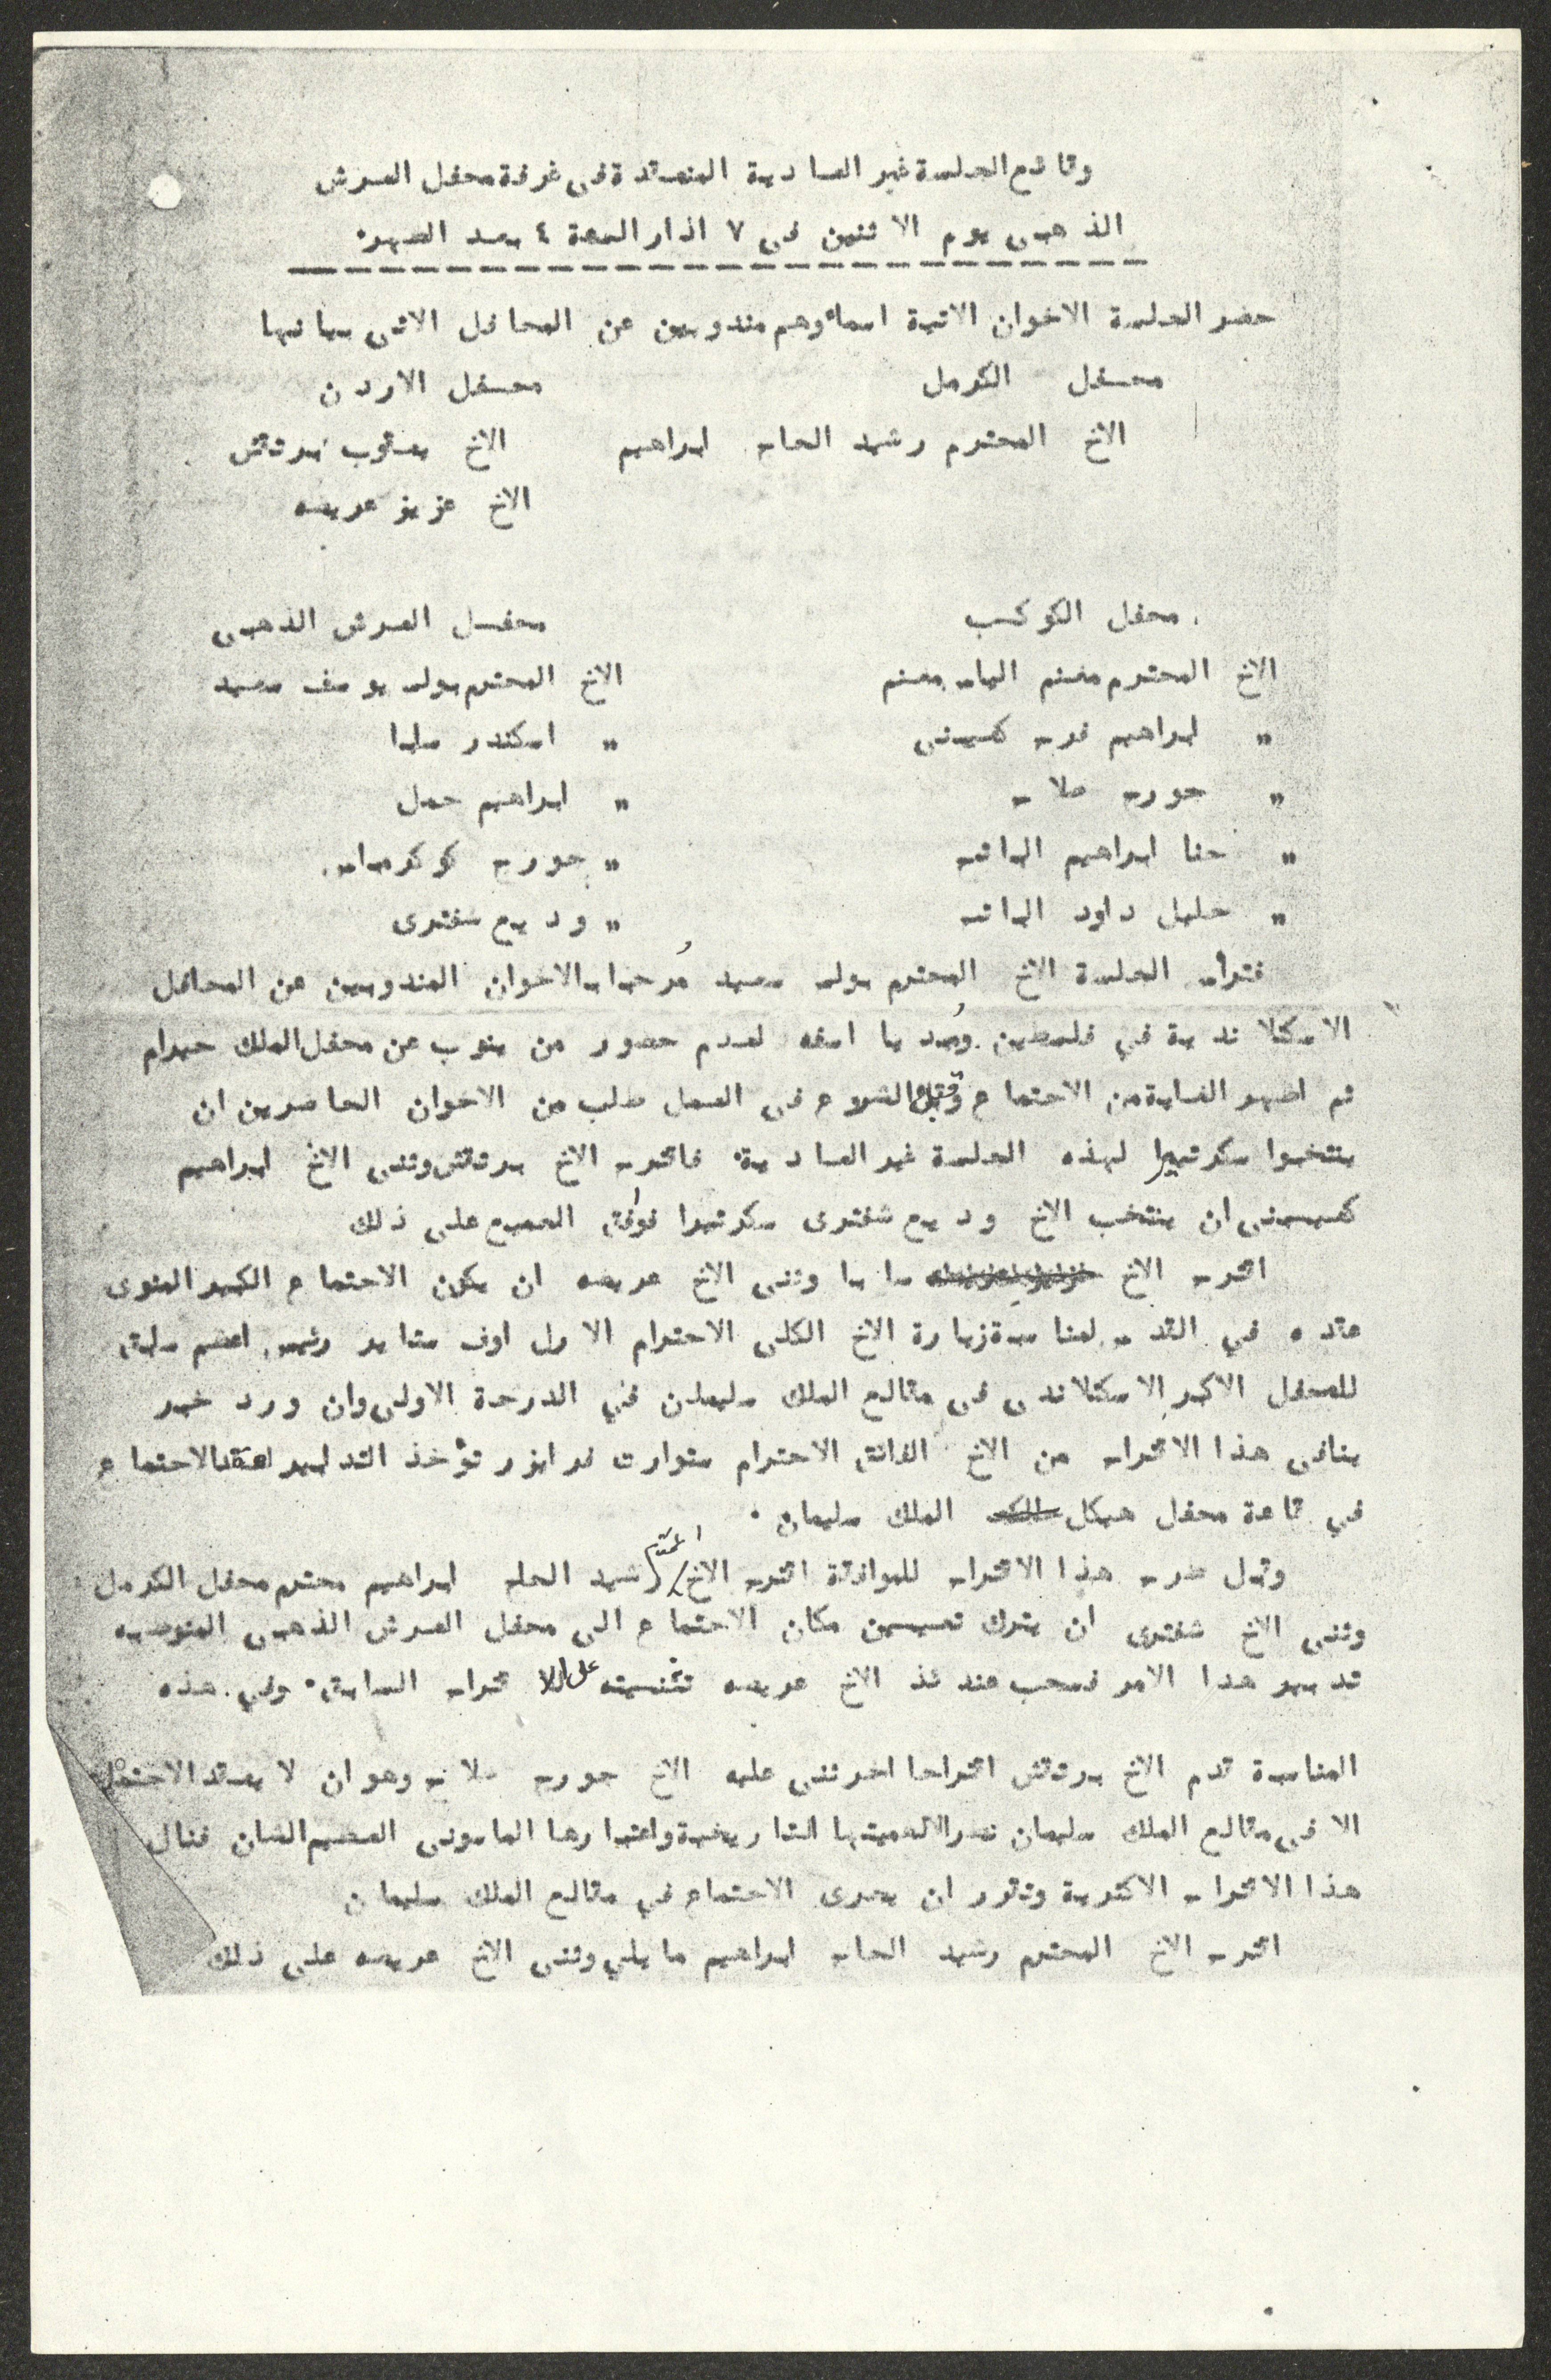 وقائع الجلسة غير العادية المنعقدة في غرفة محفل العرش
الذهبي يوم الاثنين في ٧ اذار الساعة ٤ بعد الظهر٠
حضر الجلسة الاخوان الاتية اسماؤهم مندوبين عن المحافل الاتي بيانها
محفل الكرمل
محفل الاردن
الاخ المحترم رشيد الحاج ابراهيم
الاخ يعقوب بردقش
الاخ عزيز عريضه
محفل الكوكب
محفل العرش الذهبي
الاخ المحترم مغنم الياس مغنم
الاخ المحترم بولس يوسف سعيد
" ابراهيم فرح كعيبني
" اسكندر سابا
" جورج صلاح
" ابراهيم جمل
" حنا ابراهيم
" جورج
" خليل داود
" وديع شفتري
فترأس الجلسة الاخ المحترم بولس سعيد مرحبا بالاخوان المندوبين عن المحافل
الاسكتلاندية في فلسطين ومبديا اسفه لعدم حضور من ينوب عن محفل الملك حيرام
ثم اظهر الغاية من الاجتماع وقبل الشروع في العمل طلب من الاخوان الحاضرين ان
ينتخبوا سكرتيرا لهذه الجلسة غير العادية٠ فاقترح الاخ بردقش وثنى الاخ ابراهيم
كعيبني ان ينتخب الاخ وديع شفتري سكرتيرا فوافق الجميع على ذلك
اقترح الاخ سابا وثنى الاخ عريضه ان يكون الاجتماع الكبير المنوي
عقده في القدس لمناسبة زيارة الاخ الكلي الاحترام الاول اوف ستاير رئيس اعظم سابق
للمحفل الاكبر الاسكتلاندي في مقالع الملك سليمان في الدرجة الاولى وان ورد خبر
ينافي هذا الاقتراح من الاخ الفائق الاحترام ستوارت فرايزر تؤخذ التدابير لعقد الاجتماع
في قاعة محفل هيكل الملك سليمان ٠
وقبل طرح هذا الاقتراح للموافقة اقترح الاخ المحترم رشيد الحاج ابراهيم محترم محفل الكرمل
وثنى الاخ شفتري ان يترك تعيين مكان الاجتماع الى محفل العرش الذهبي المنوط به
تدبير هذا الامر فسحب عندئذ الاخ عريضه تثنيته على الاقتراح السابق٠ وفي هذه
المناسبة قدم الاخ بردقش اقتراحا اخر ثنى عليه الاخ جورج صلاح وهو ان لا يعقد الاجتماع
الا في مقالع الملك سليمان نظرا لاهميتها التاريخية واعتبارها الماسوني العظيم الشان فنال
هذا الاقتراح الاكثرية وتقرر ان يجرى الاجتماع في مقالع الملك سليمان
اقترح الاخ المحترم رشيد الحاج ابراهيم ما يلي وثنى الاخ عريضه على ذلك